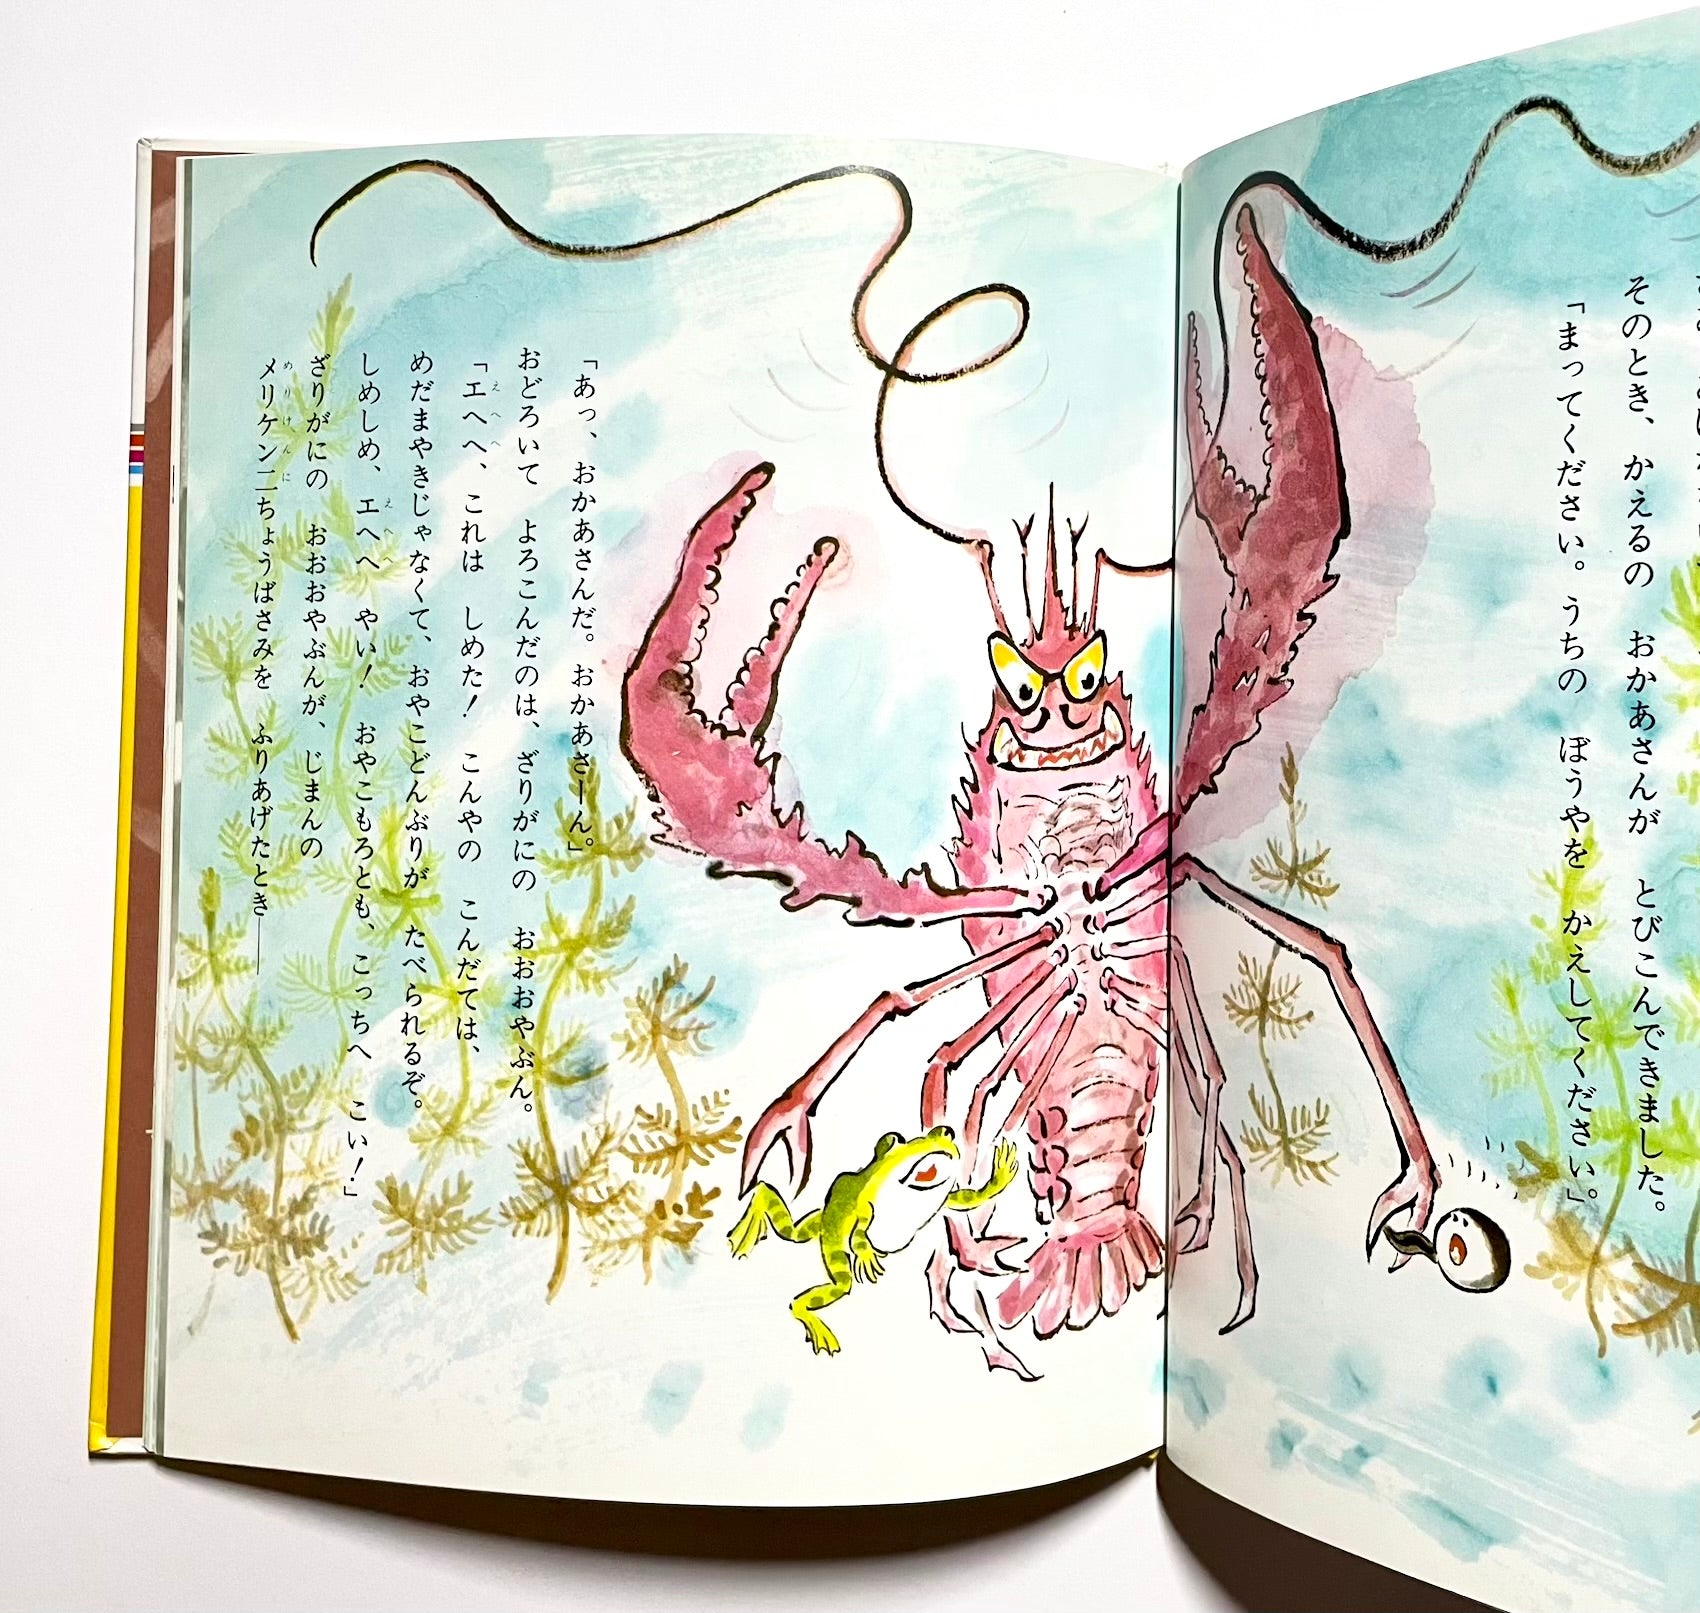 そのとき、かえるの　おかあさんが　とびこんできました。
「まってください。うちの　ぼうやを　かえしてください」。
「あっ、おかあさんだ。おかあさーん。」
おどろいて　よろこんだのは、ざりがにの　おおおやぶん。
「エヘヘ、これは　しめた！　こんやの　こんだては、
めだまやきじゃなくて、おやこどんぶりが　たべられるぞ。
しめしめ、エヘヘ　やい！　おやこもろとも、こっちへ　こい！」
ざりがにの　おおおやぶんが、じまんの
メリケン二ちょうばさみを　ふりあげたとき——